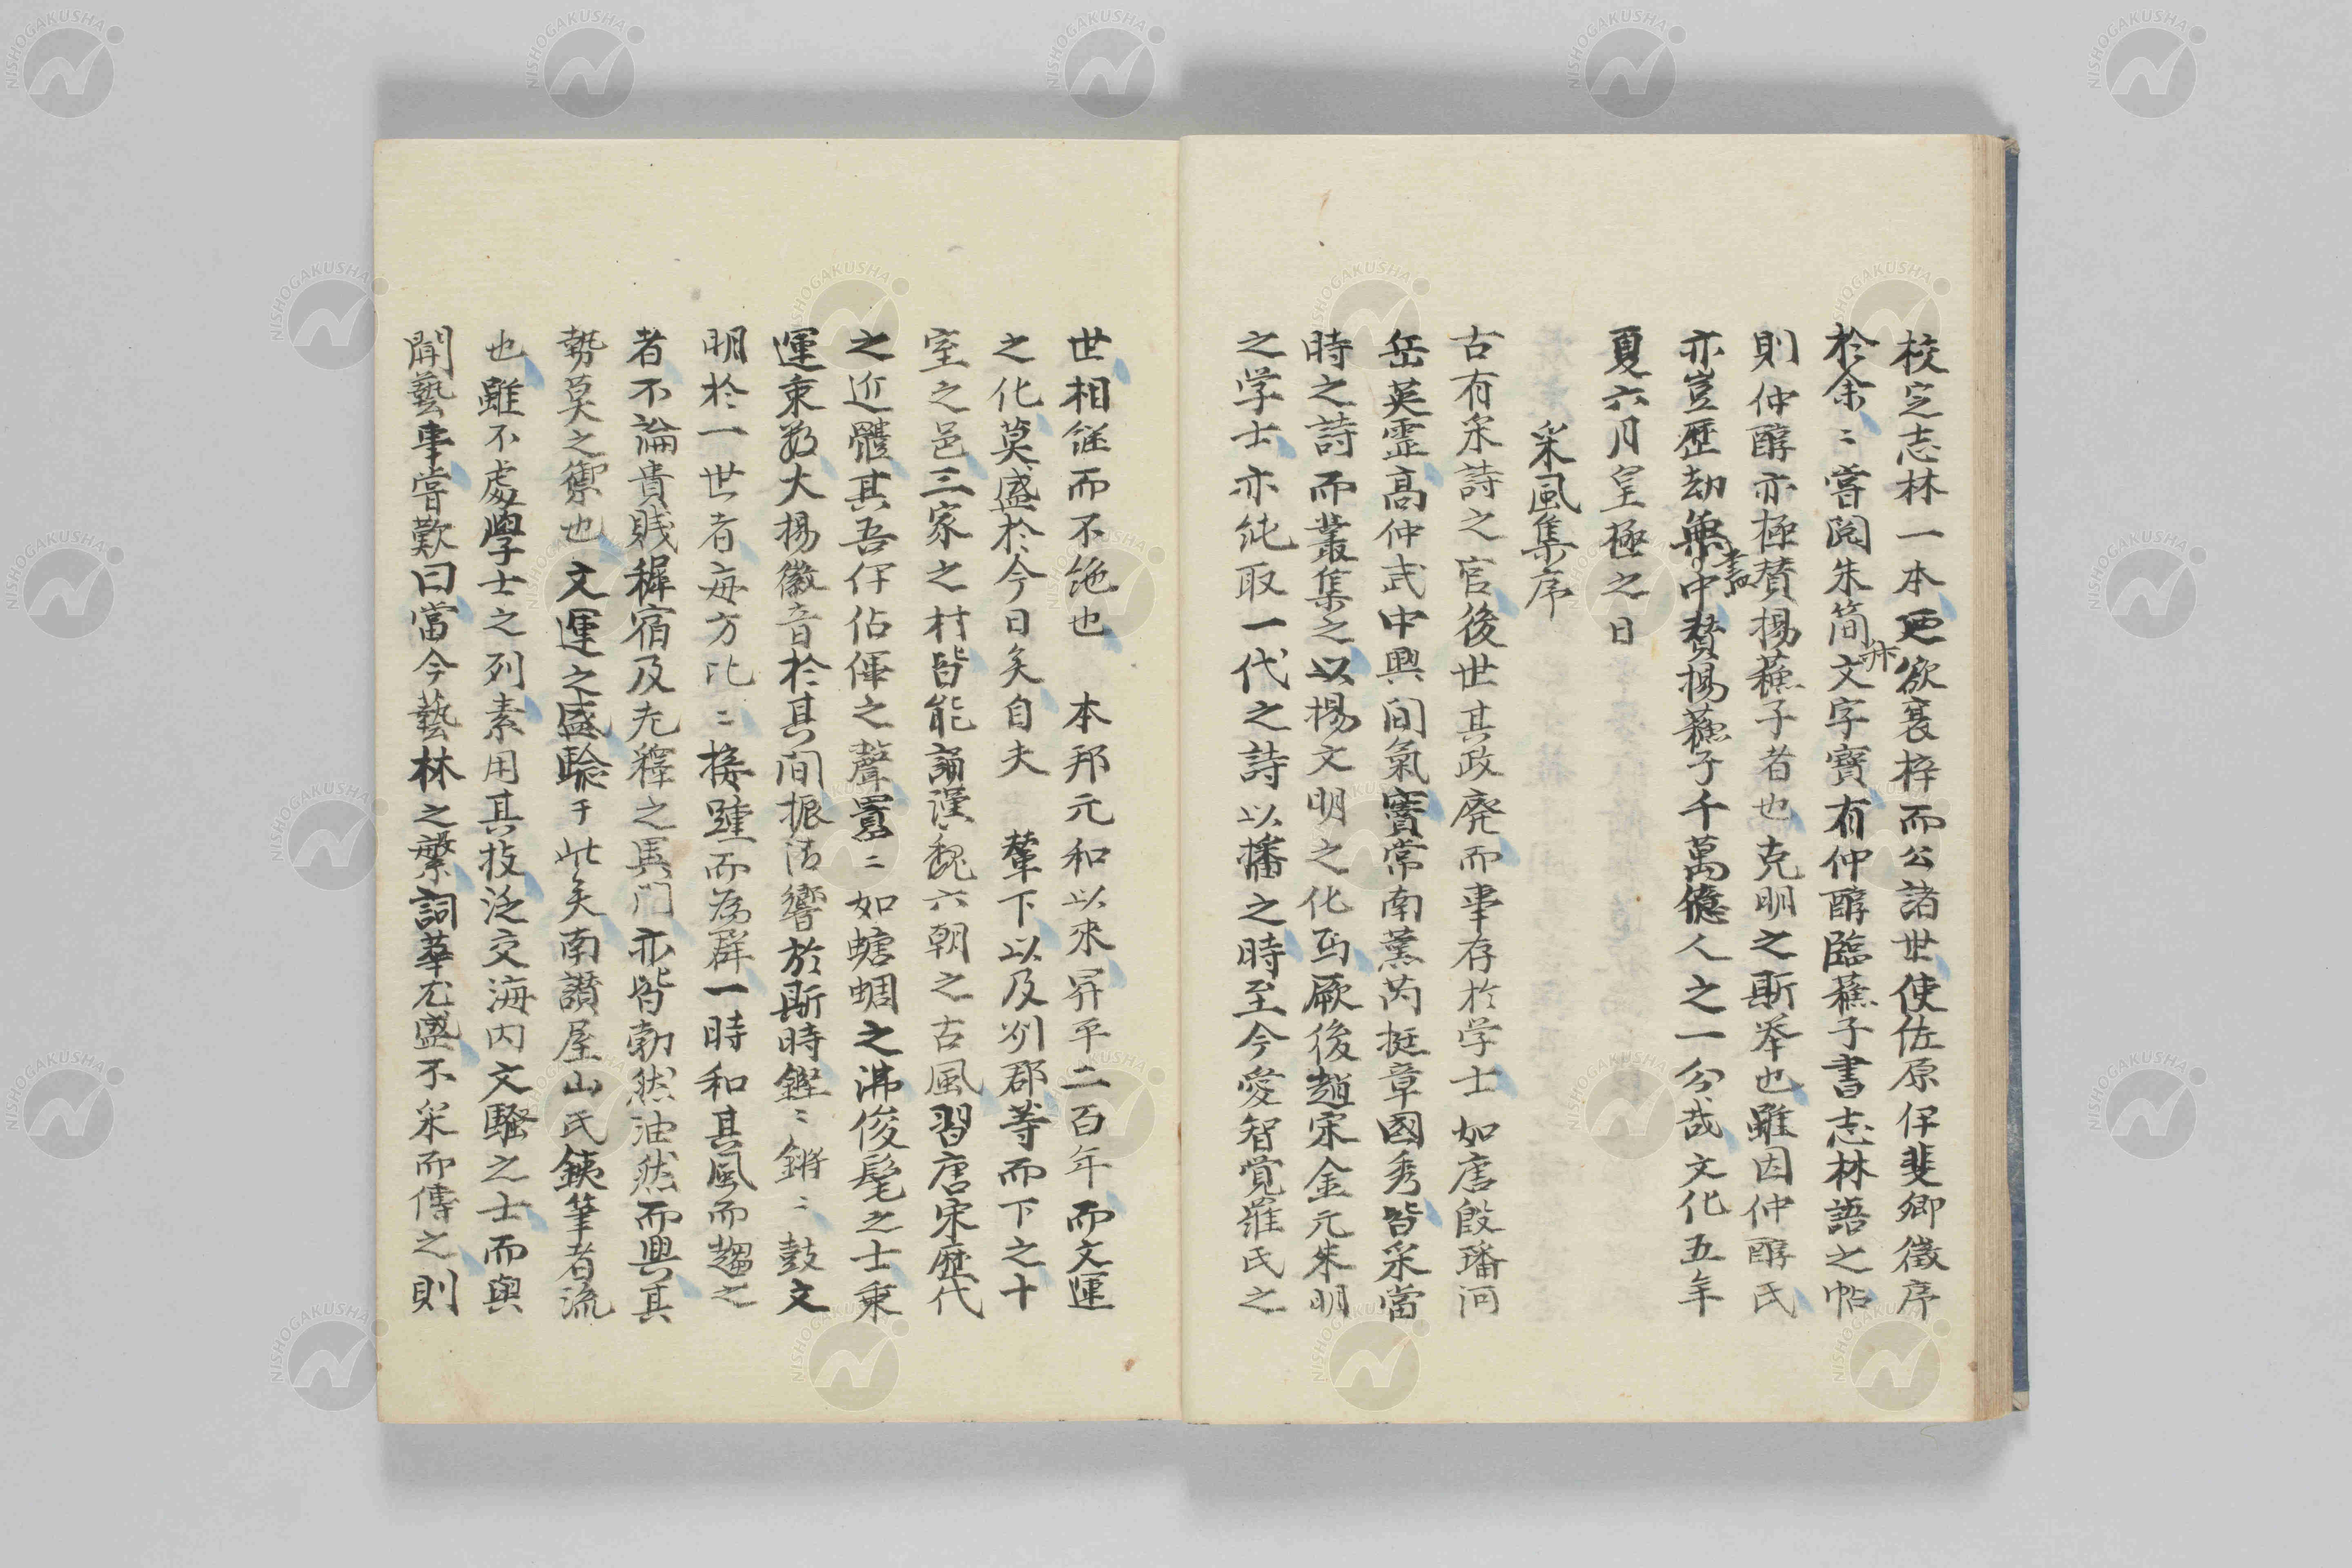 校定志林一本更欲裒梓而公諸世使佐原伊斐卿徵序
於余〻嘗閲朱簡文字寶有仲醇臨蘓子書志林語之帖
則仲醇亦極賛揚蘓子者也克明之斯举也雖因仲醇氏
亦豈歴劫無盡中賛揚蘓子千萬億人之一分哉文化五年
夏六月皇極之日
采風集序
古有采詩之官後世其政廃而事存於学士如唐殷璠河
岳英霊高仲武中興间氣竇常南薫芮挺章國秀皆采當
時之詩而叢集之以揚文明之化焉厥後趙宋金元朱明
之学士亦純取一代之詩以播之時至今愛智覚羅氏之
世相継而不绝也 本邦元和以來昇平二百年而文運
之化莫盛於今日矣自夫 輦下以及州郡等而下之十
室之邑三家之村皆能誦漢魏六朝之古風習唐宋歴代
之近體其吾伊佔俾之聲囂〻如螗蜩之沸俊髦之士秉
運秉数大揚徽音於其间振清響於斯時鏗〻鏘〻鼓文
明於一世者毎方比〻接踵而為群一時和其風而趨之
者不論貴賎穉宿及老釋之異门亦皆勃然油然而興其
勢莫之禦也文運之盛験于此矣南讃屋山氏銕筆者流
也雖不處學士之列素用其技泛交海内文騷之士而與
聞藝事嘗歎曰當今藝林之繁詞華尤盛不采而傳之則
NISHOGAKUSHA